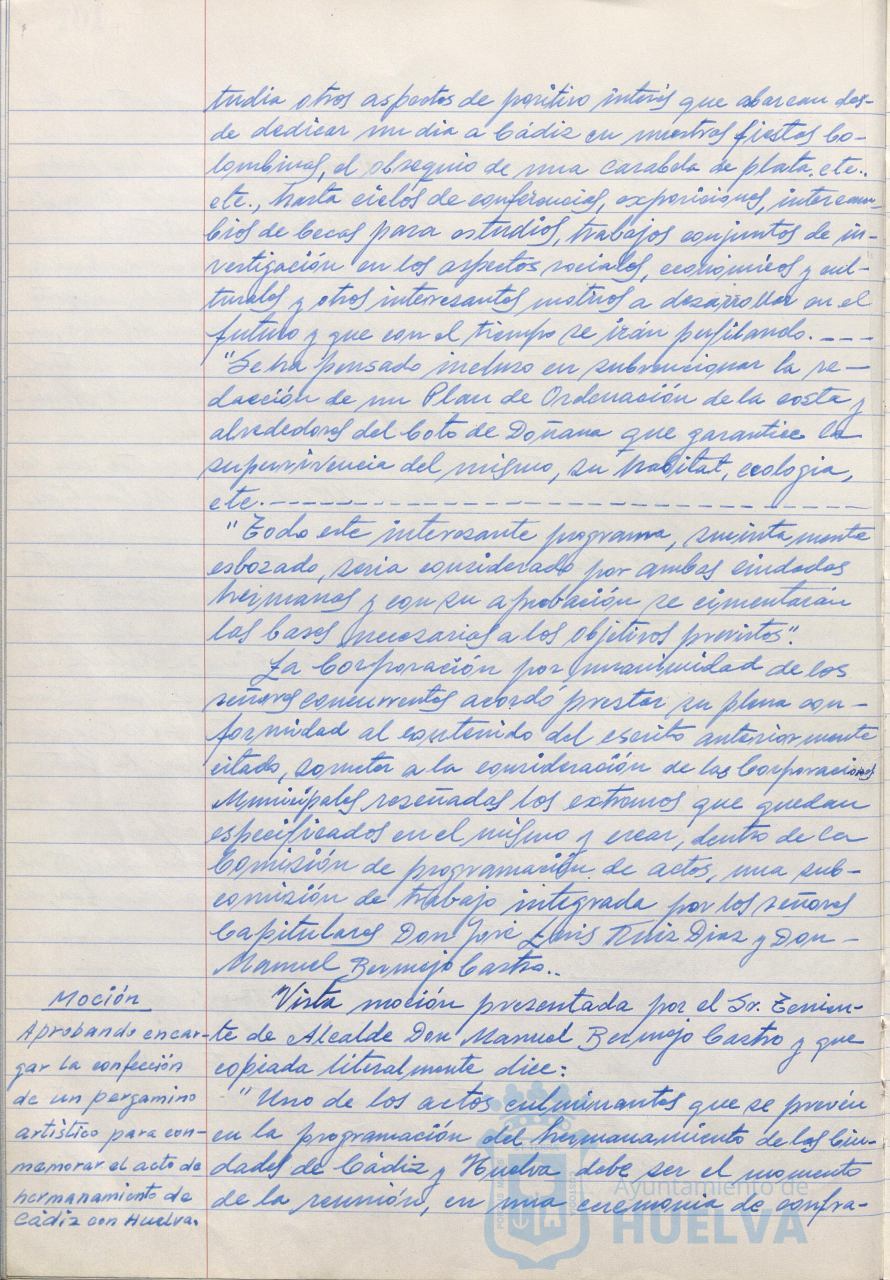 tudia otros aspectos de positivo interés que abarcan des-
de dedicar un dia a Cádiz en nuestras fiestas Co-
lombinas, el obsequio de una carabela de plata, etc.,
etc., hasta ciclos de conferencias, exposiciones, intercam-
bios de becas para estudios, trabajos conjuntos de in-
vestigación en los aspectos sociales, económicos y cul-
turales y otros interesantes motivos a desarrollar en el
futuro y que con el tiempo se irán perfilando.----
"Se ha pensado incluso en subvencionar la re-
dacción de un Plan de Ordenación de la costa y
alrededores del Coto de Doñana que garantice la
supervivencia del mismo, su habitat, ecologia,
etc.--------------------
"Todo este interesante programa, sucintamente
esbozado, seria considerado por ambas ciudades
hermanas y con su aprobación se cimentarán
las bases necesarias a los objetivos previstos".
La Corporación por unanimidad de los
señores concurrentes acordó prestar su plena con-
formidad al contenido del escrito anteriormente
citado, someter a la consideración de las Corporaciones
Municipales reseñadas los extremos que quedan
especificados en el mismo y crear, dentro de la
Comisión de programación de actos, una sub-
comisión de trabajo integrada por los señores
Capitulares Don José Luis Ruiz Diaz y Don-
Manuel Bermejo Castro..
Moción
Aprobando encar-
gar la confección
de un pergamino
artístico para con-
memorar el acto de
hermanamiento de
Cádiz con Huelva.
Vista moción presentada por el Sr. Tenien-
te de Alcalde Don Manuel Bermejo Castro y que
copiada literalmente dice:
"Uno de los actos culminantes que se prevén
en la programación del hermanamiento de las Ciu-
dades de Cádiz y Huelva debe ser el momento
de la reunión, en una ceremonia de confra-
Ayuntamiento de
HUELVA